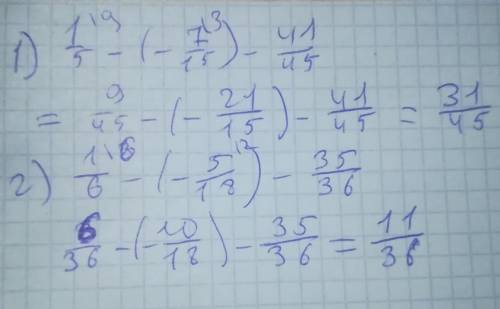 1) 1\9/5 - (- 7\3/15) - 41/45
= 9/45 - (- 21/15) - 41/45 = 31/45
2) 1\6/6 - (- 5\2/18) - 35/36
6/36 - (- 10/18) - 35/36 = 11/36